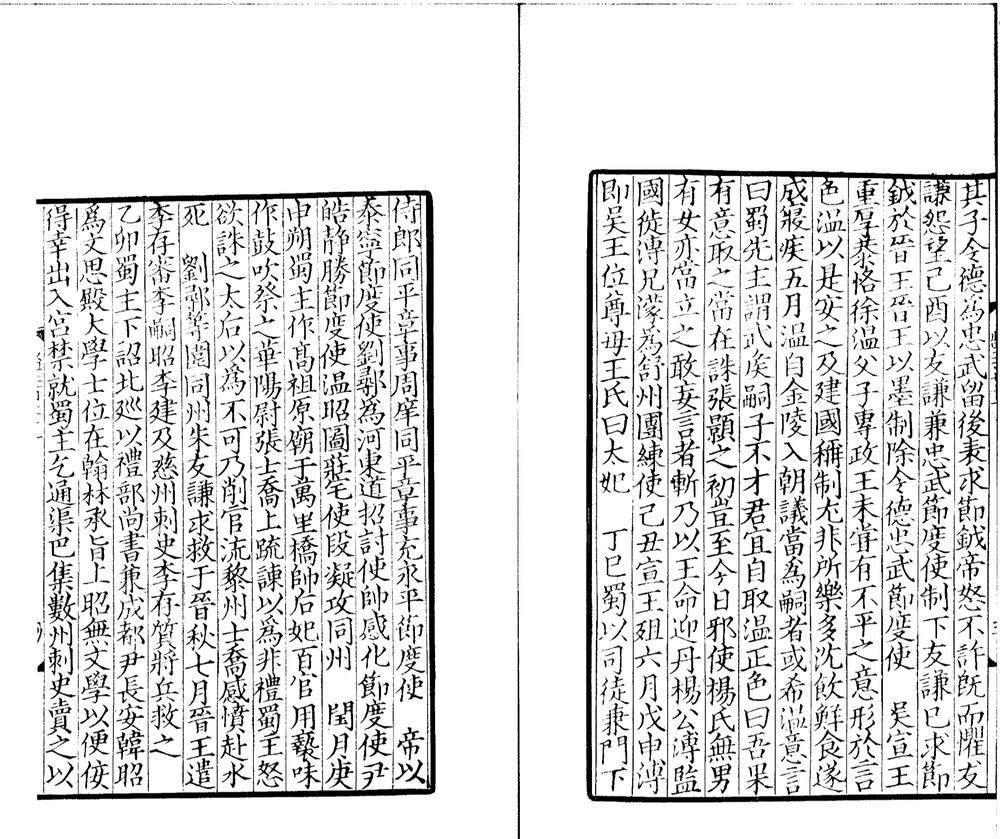 其子令德為忠武留後表求節鉞帝怒不許旣而懼友
謙怨望己酉以友謙兼忠武節度使制下友謙已求節
鉞於晉王晉王以墨制除令德忠武節度使　吳宣王
重厚恭恪徐溫父子專政王未甞有不平之意形於言
色溫以是安之及建國稱制尤非所樂多沈飲鮮食遂
成寢疾五月溫自金陵入朝議當為嗣者或希溫意言
曰蜀先主謂武侯嗣子不才君宜自取溫正色曰吾果
有意取之當在誅張顥之初豈至今日邪使楊氏無男
有女亦當立之敢妄言者斬乃以王命迎丹楊公溥監
國徙溥兄濛為舒州團練使己丑宣王殂六月戊申溥
即吳王位尊母王氏曰太妃　丁巳蜀以司徒兼門下
侍郎同平章事周庠同平章事充永平節度使　帝以
泰寧節度使劉鄩爲河東道招討使帥感化節度使尹
皓靜勝節度使溫昭圖莊宅使段凝攻同州　閏月庚
申朔蜀主作高祖原廟于萬里橋帥后妃百官用褻味
作鼓吹祭之華陽尉張士喬上疏諫以爲非禮蜀主怒
欲誅之太后以爲不可乃削官流黎州士喬感憤赴水
死　劉鄩等圍同州朱友謙求救于晉秋七月晉王遣
李存審李嗣昭李建及慈州刺史李存質將兵救之
乙卯蜀主下詔北巡以禮部尚書兼成都尹長安韓昭
爲文思殿大學士位在翰林承旨上昭無文學以便佞
得幸出入宮禁就蜀主乞通渠巴集數州刺史賣之以